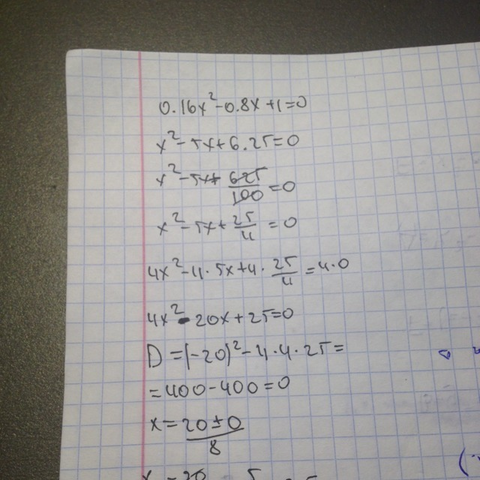 0.16x²-0.8x+1=0
x²-5x+6.25=0
x²-5x+625/100=0
x²-5x+25/4=0
4x²-4·5x+4·25/4=4·0
4x²-20x+25=0
D=(-20)²-4·4·25=
=400-400=0
x=20±0/8